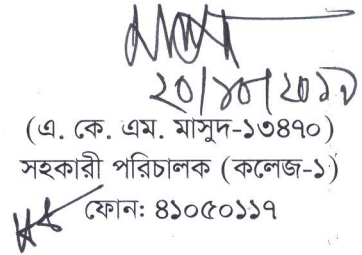 ২০/১০/২০১৯
(এ. কে. এম. মাসুদ-১৩৪৭০)
সহকারী পরিচালক (কলেজ-১)
ফোন: ৪১০৫০১১৭